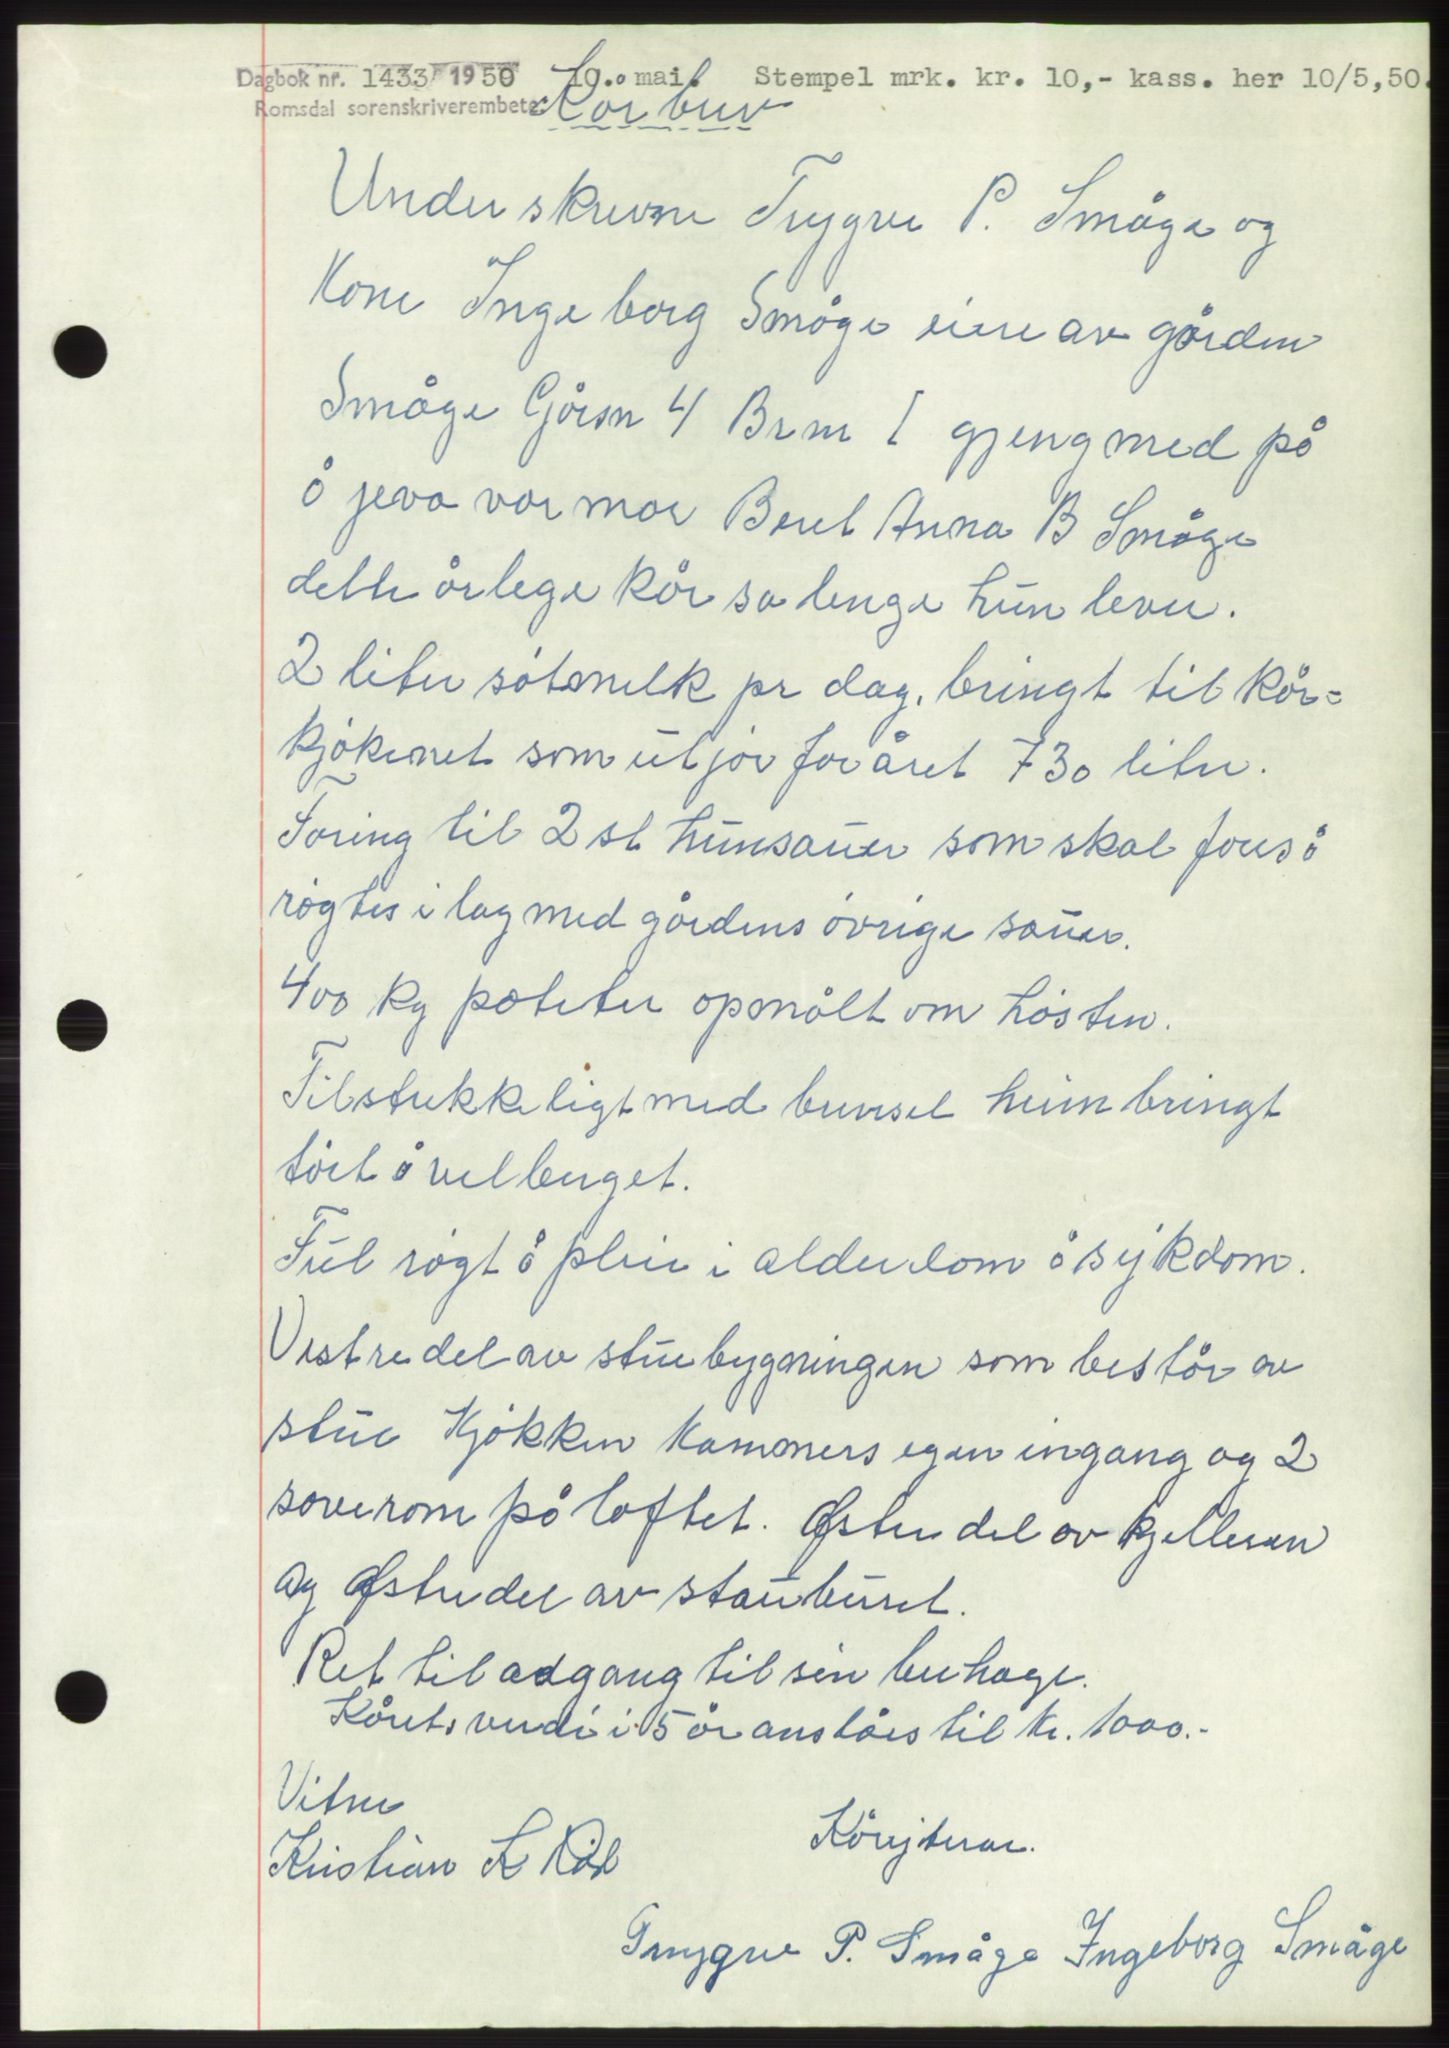 Dagbok nr. 1433 1950 10. mai. Stempel mrk. kr. 10,- kass. her 10/5,50.
Romsdal sorenskriverembete.
Kårbrev
Underskrevne Trygve P. Småge og
Kone Ingeborg Småge eiere av gården
Småge Gårsn 4 Brn 1 gjeng med på
å jeva vor mor Beret Anna B Småge
dette årlege kår så lenge hun lever.
2 liter søtmelk pr dag, bringt til kår=
kjøkenet som utjør for året 730 liter.
Foring til 2 st hunsauer som skal fores å
røgtes i lag med gårdens øvrige sauer.
400 kg poteter opmålt om høsten.
Tilstrekkeligt med brensel heimbringt
tørt å velberget.
Ful røgt å pleie i alderdom å sykdom.
Vestre del av stuebygningen som består av
stue Kjøkken Kammers egen ingang og 2
soverom på loftet. Østre del av kjelleren
og Østre del av stauburet.
Ret til adgang til sin berhage.
Kårets verdi i 5 år anslåes til kr. 1000.-
Vitne
Kårijterar.
Kristian K Råd
Trygve P. Småge Ingeborg Småge